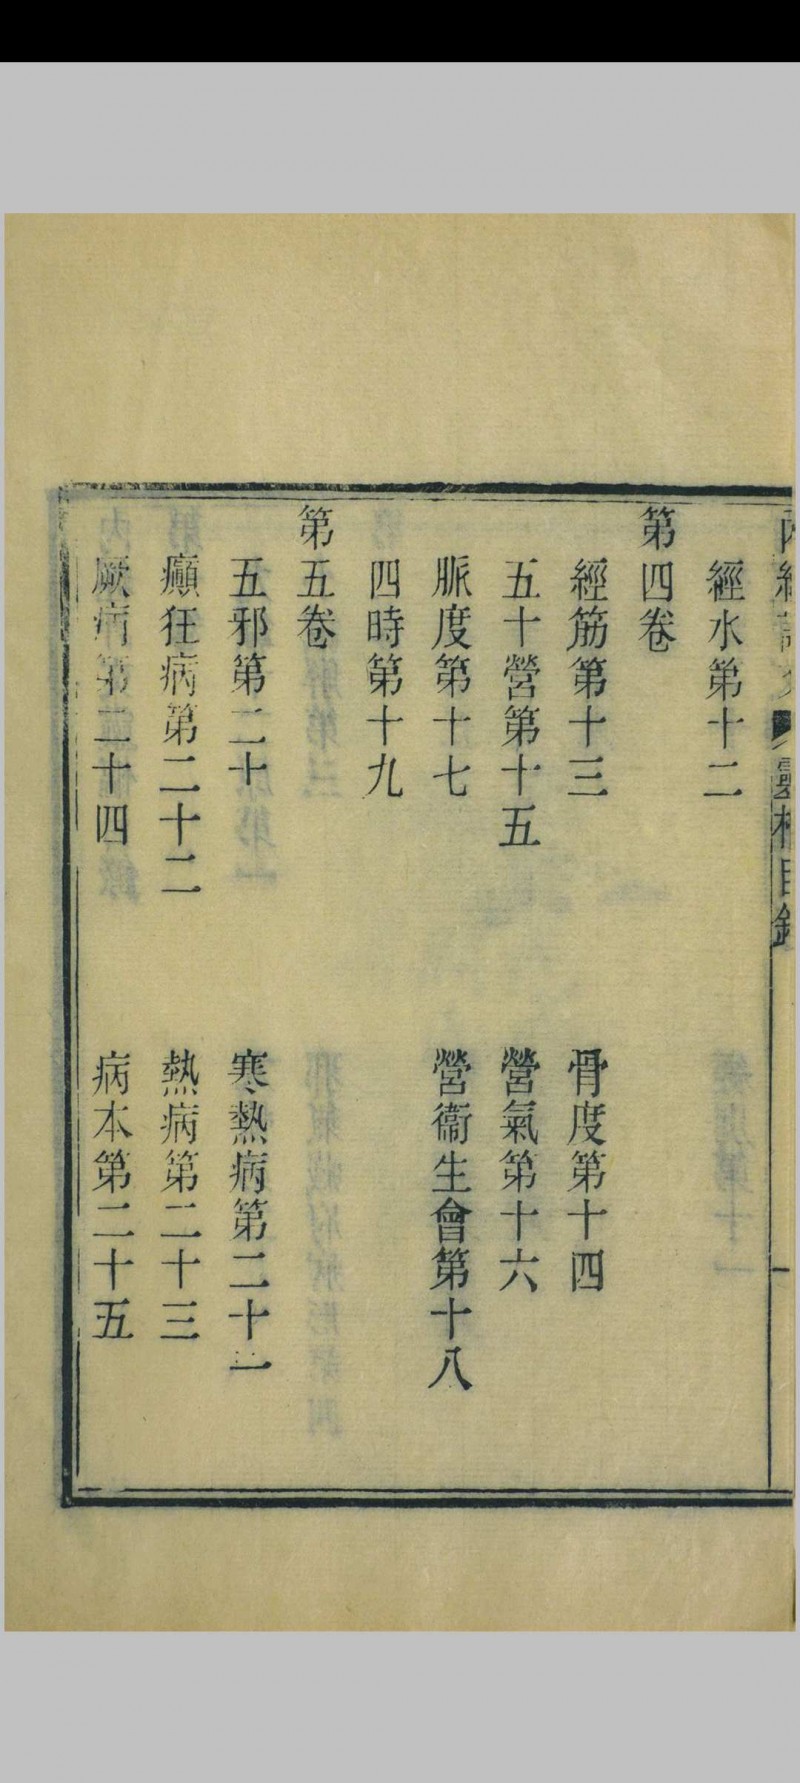 靈樞目錄
經水第十二
第四卷
經筋第十三　骨度第十四
五十營第十五　營氣第十六
脈度第十七　營衞生會第十八
四時第十九
第五卷
五邪第二十　寒熱病第二十一
癲狂病第二十二　熱病第二十三
厥病第二十四　病本第二十五